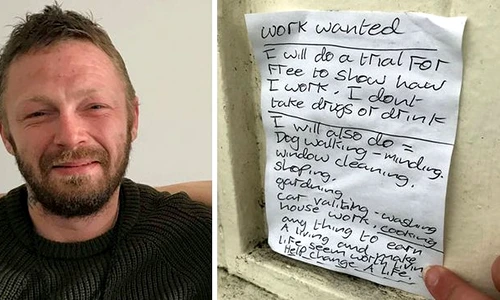 work wanted
I will do a trial For
Free to show how
I work, I dont
take drugs or drink
I will also do =
Dog walking - minding.
window cleaning.
shoping.
gardning
car valiting - washing
house work, cooking
any thing to earn
A living and make
life seem worth living
Help change A life.